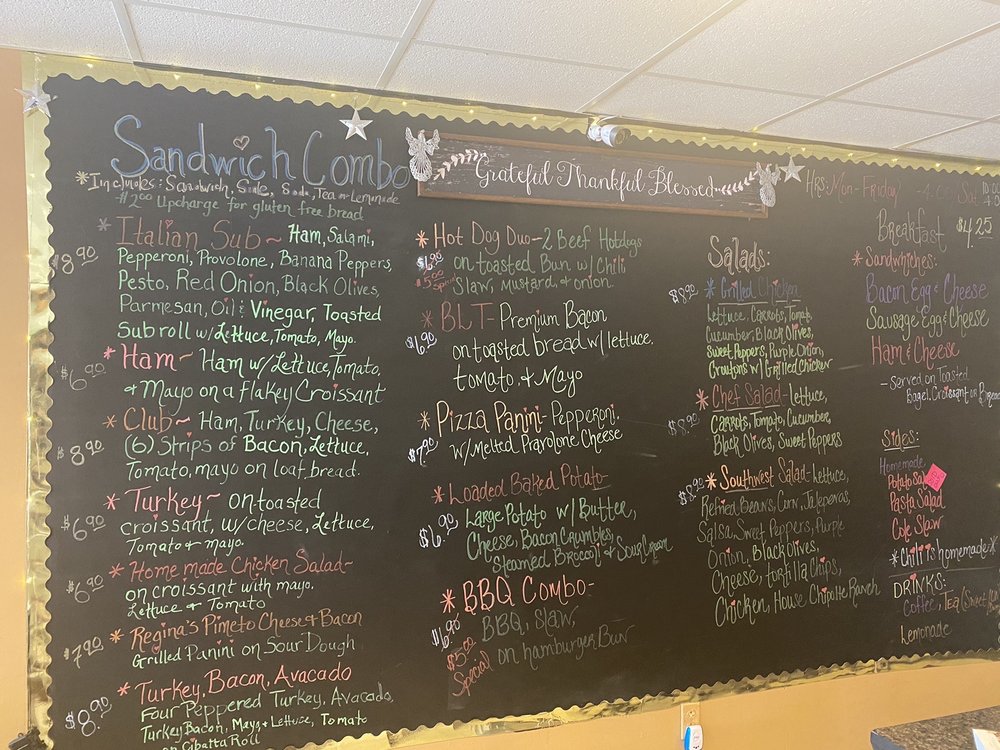 Sandwich Combo
*Includes: Sandwich, Side, Soda, Tea or Lemonade
*$2.00 Upcharge for gluten free bread
$8.90
Italian Sub~ Ham, Salami,
Pepperoni, Provolone, Banana Peppers,
Pesto, Red Onion, Black Olives,
Parmesan, Oil & Vinegar, Toasted
Sub roll w/ Lettuce, Tomato, Mayo.
$6.90
*Ham~ Ham w/ Lettuce, Tomato,
& Mayo on a flakey Croissant
$8.90
*Club~ Ham, Turkey, Cheese,
(6) Strips of Bacon, Lettuce,
Tomato, mayo on loaf bread.
$6.90
*Turkey~ on toasted
croissant, w/ cheese, Lettuce,
Tomato & mayo.
$6.90
*Home made Chicken Salad~
on croissant with mayo,
Lettuce & Tomato
$7.90
*Regina's Pimeto Cheese & Bacon
Grilled Panini on Sour Dough
$8.90
*Turkey, Bacon, Avacado
Four Peppered Turkey, Avacado,
Turkey Bacon, Mayo + Lettuce, Tomato
on Cibatta Roll
Grateful Thankful Blessed
*Hot Dog Duo- 2 Beef Hotdogs
$6.90
on toasted Bun w/ Chili
$5.00 Special
Slaw, Mustard, & onion.
*BLT- Premium Bacon
$6.90
on toasted bread w/ lettuce.
tomato, & Mayo
*Pizza Panini- Pepperoni,
$7.90
w/ Melted Pravolone Cheese
*Loaded Baked Potato-
$6.90
Large Potato w/ Butter,
Cheese, Bacon Crumbles,
Steamed Brocoli & Sour Cream
*BBQ Combo-
$6.90
BBQ, Slaw,
$5.00 Special
on hamburger Bun
Salads:
$8.90
*Grilled Chicken
Lettuce, Carrots, Tomato,
Cucumber, Black Olives,
Sweet Peppers, Purple Onion,
Croutons w/ Grilled Chicken
$8.90
*Chef Salad- lettuce,
Carrots, Tomato, Cucumber,
Black Olives, Sweet Peppers
$8.90
*Southwest Salad- Lettuce,
Refried Beans, Corn, Jalepenos,
Salsa, Sweet Peppers, Purple
Onion, Black olives,
Cheese, Tortilla Chips,
Chicken, House Chipolte Ranch
Hrs: Mon-Friday
Sat.
Breakfast $4.25
*Sandwhiches:
Bacon Egg & Cheese
Sausage Egg & Cheese
Ham & Cheese
- Served on Toasted
Bagel, Croissant or Bread
Sides:
Homemade
Potato
Pasta Salad
Cole Slaw
*Chili is homemade*
DRINKS:
Coffee, Tea (Sweet
Lemonade